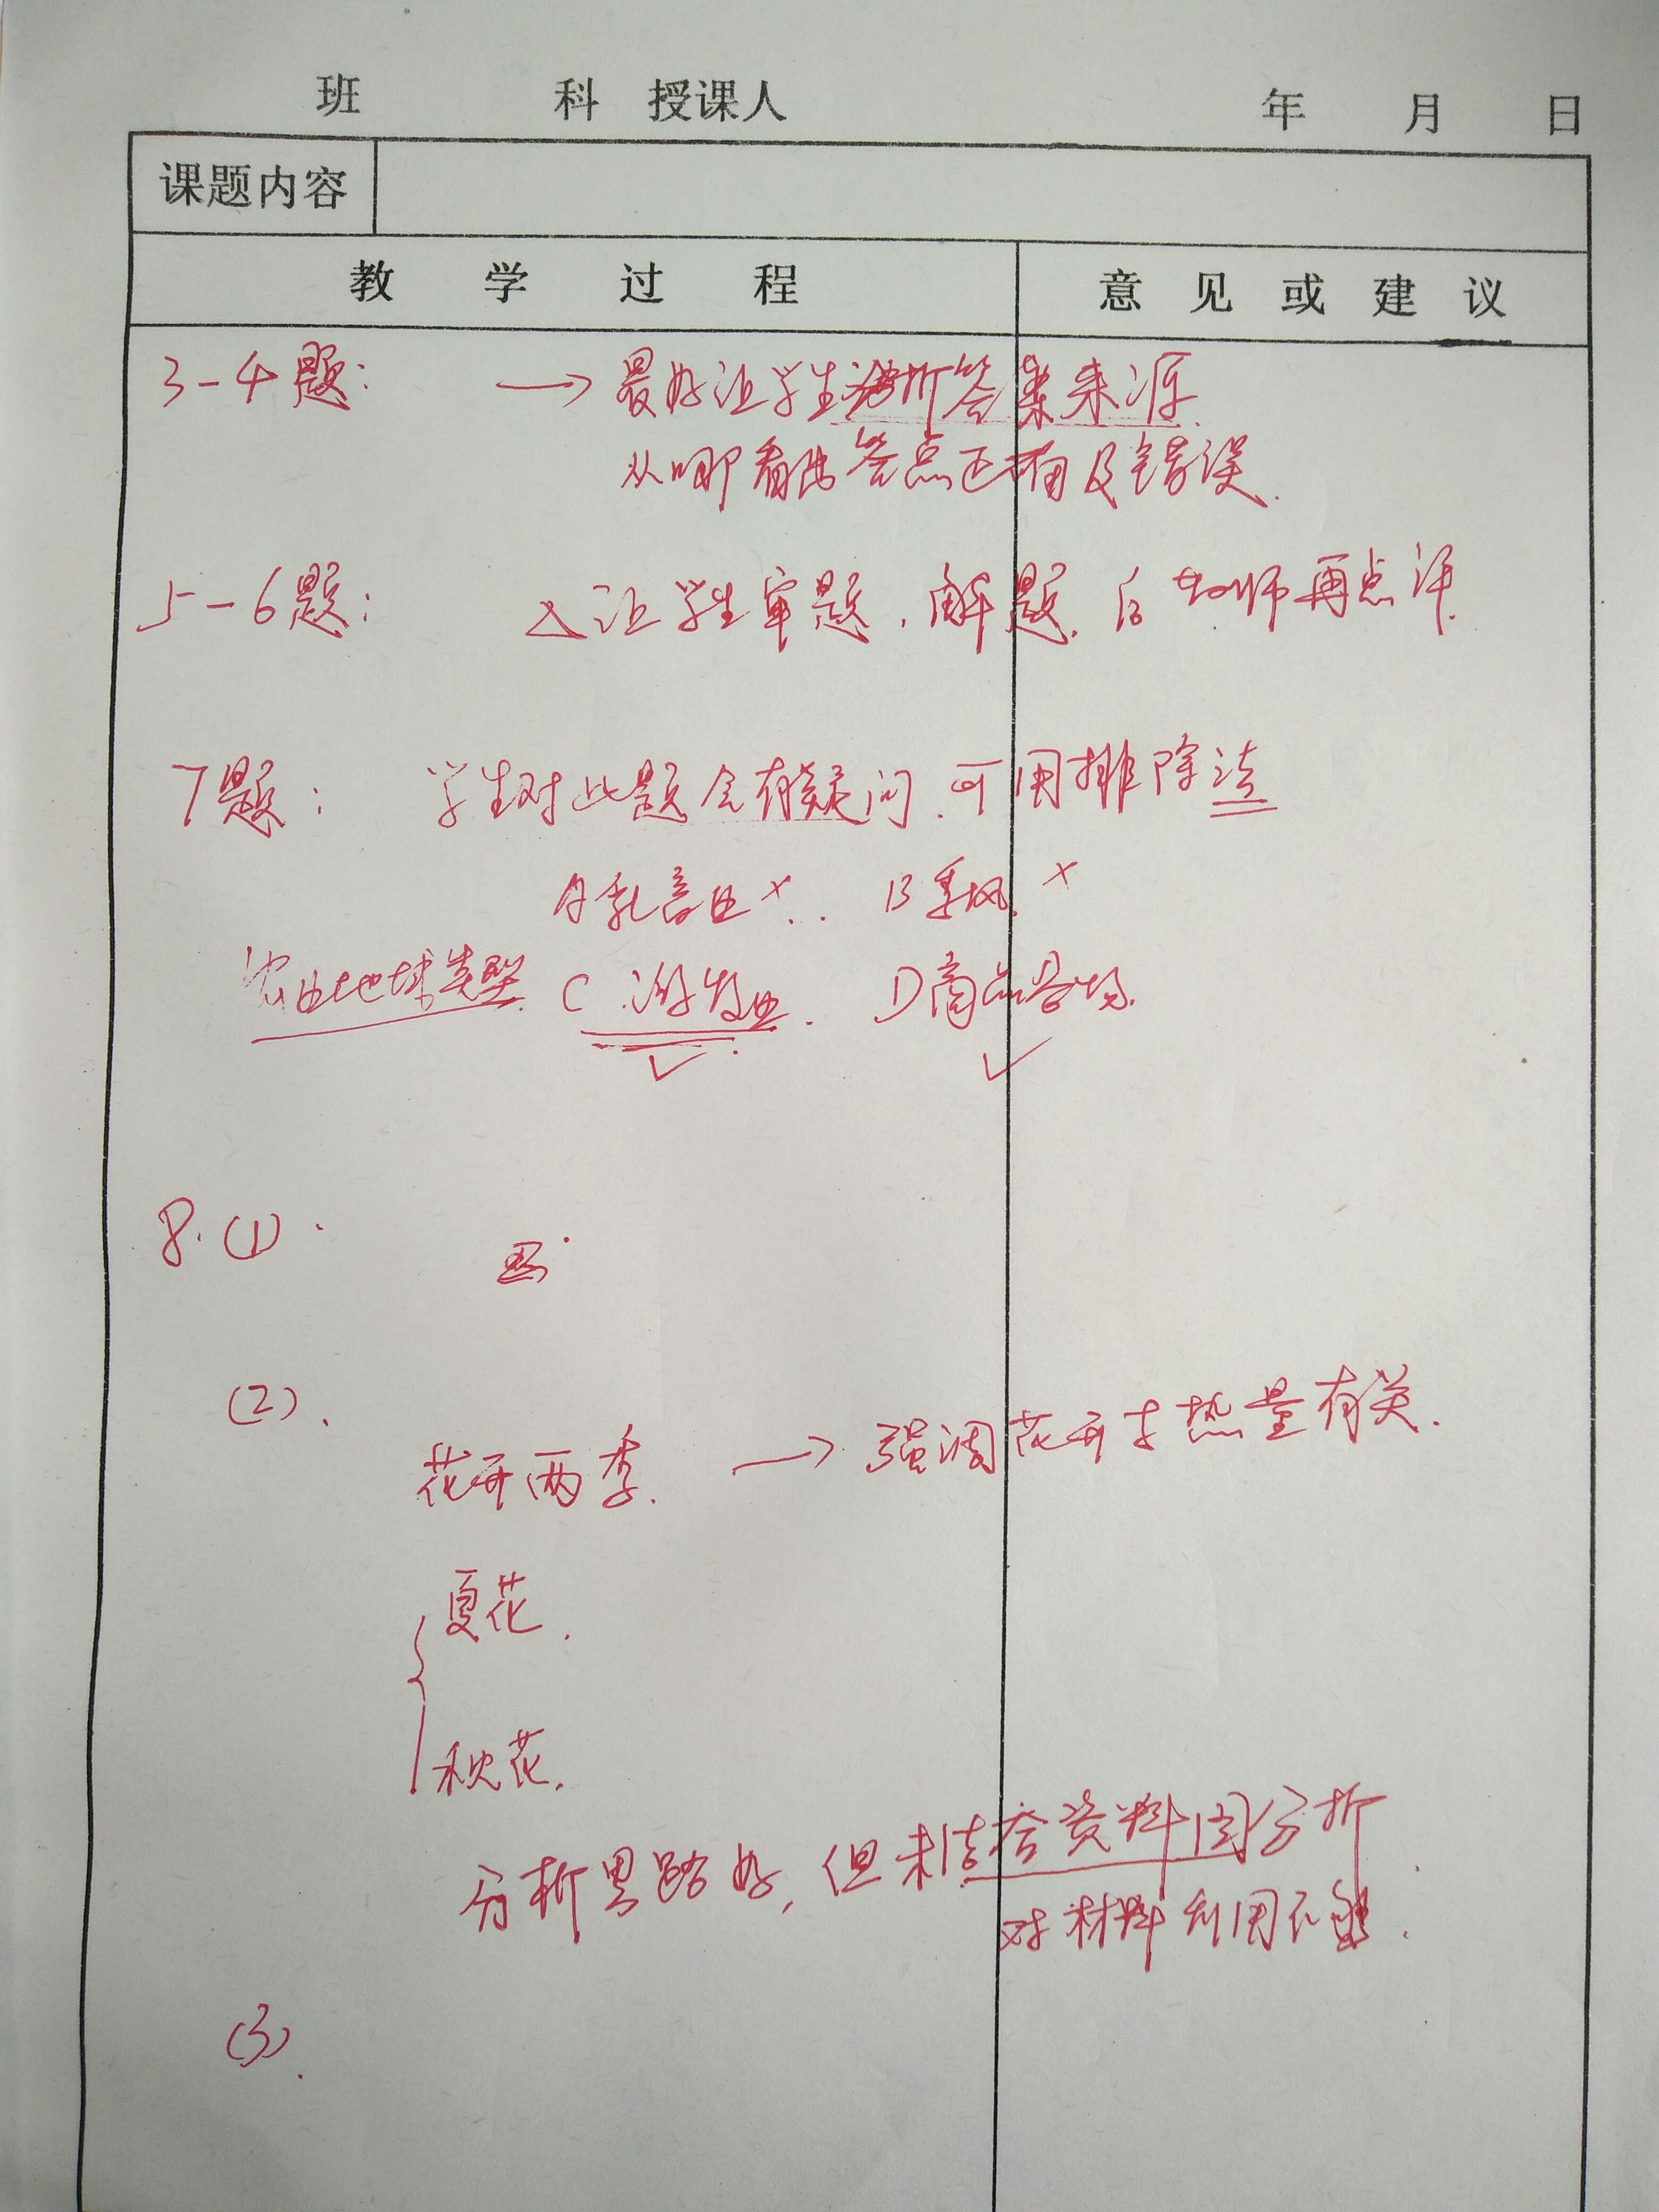 班 科 授课人 年 月 日
课题内容
教 学 过 程 意 见 或 建 议
3-4题: → 最好让学生分析答案来源.
从哪看出答点正确及错误.
5-6题: △让学生审题、解题. 后老师再点评.
7题: 学生对此题会有疑问. 可用排除法
A乳畜业×. B季风. ×
农业地域类型 C 游牧业. D商品谷物.
✓ ✓
8.(1).
(2).
花开两季. → 强调花开与热量有关.
夏花.
秋花.
分析思路好, 但未结合资料图分析.
对材料利用不够.
(3).